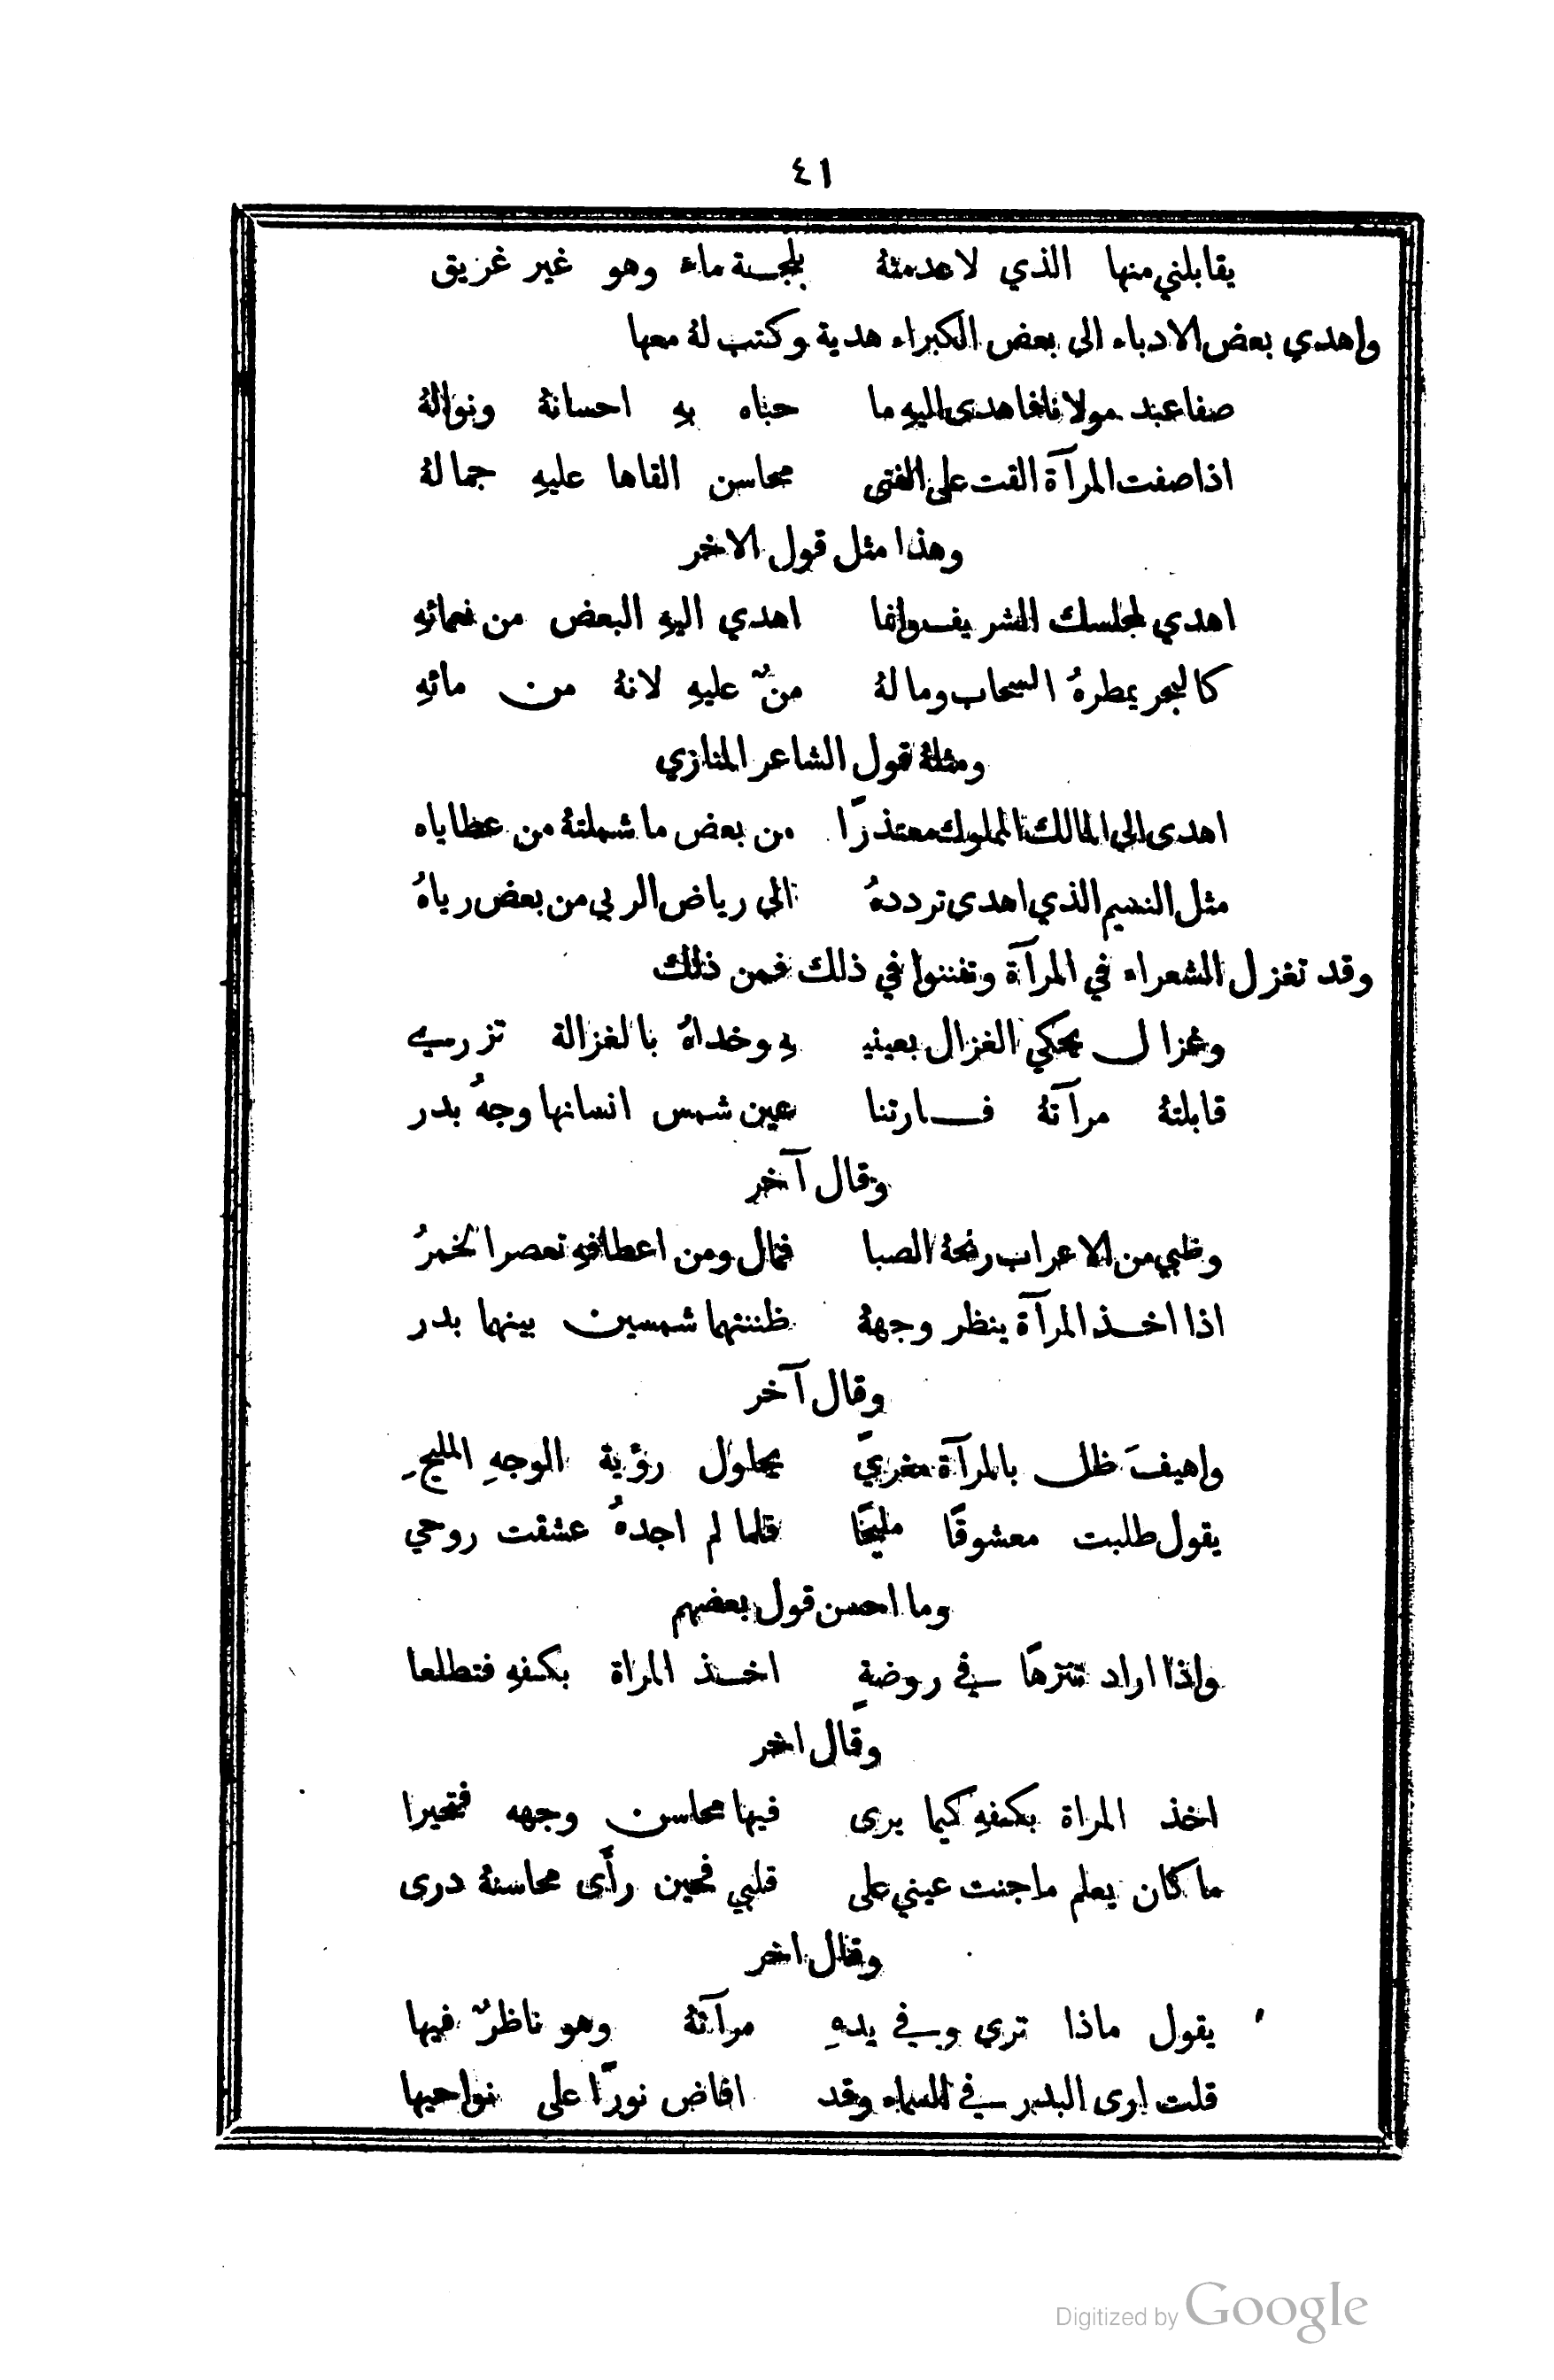 ٤١
يقابلني منها الذي لا عدمتهُ بلجـة ماء وهو غير غريق
واهدي بعض الادباء الى بعض الكبراء هدية وكتب لهُ معها
صفا عبد مولانا فاهدى اليهِ ما حباه بهِ احسانهُ ونوالهُ
اذا صفت المرآة القت على الفتى محاسن القاها عليهِ جمالهُ
وهذا مثل قول الاخر
اهدي لمجلسك الشريف وانما اهدي اليهِ البعض من نعمائهِ
كالبحر يمطرهُ السحاب وما لهُ منٌ عليهِ لانهُ من مائهِ
ومثلهُ قول الشاعر المنازي
اهدى الى المالك المملوك معتذرًا من بعض ما شملتهُ من عطاياه
مثل النسيم الذي اهدى ترددهُ الى رياض الربى من بعض رياهُ
وقد تغزل الشعراء في المرآة وتفننوا في ذلك فمن ذلك
وغزال يحكي الغزال بعينيـ ـهِ وخداهُ بالغزالة تزري
قابلتهُ مرآتهُ فـارتنا عين شمس انسانها وجهُ بدر
وقال آخر
وظبي من الاعراب رنحهُ الصبا فمال ومن اعطافهِ تعصر الخمرُ
اذا اخـذ المرآة ينظر وجههُ ظننتهما شمسين بينهما بدر
وقال آخر
واهيفَ ظل بالمرآة مغريً يحاول رؤية الوجهِ المليحِ
يقول طلبت معشوقًا مليحًا فلما لم اجدهُ عشقت روحي
وما احسن قول بعضهم
واذا اراد تنزهًا في روضةٍ اخـذ المراة بكفهِ فتطلعا
وقال اخر
اخذ المراة بكفهِ كيما يرى فيها محاسن وجهه فتحيرا
ما كان يعلم ما جنت عيني على قلبي فحين رأى محاسنهُ درى
وقال اخر
يقول ماذا ترى وفي يدهِ مرآتهُ وهو ناظرٌ فيها
قلت ارى البدر في السماء وقد افاض نورًا على نواحيها
Digitized by Google